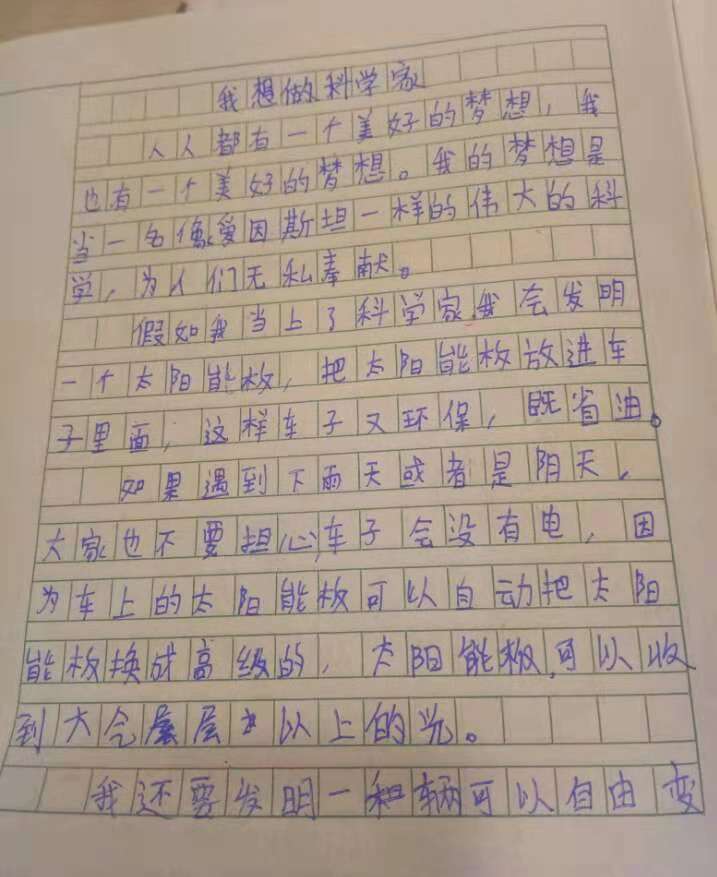 我想做科学家
人人都有一个美好的梦想，我
也有一个美好的梦想。我的梦想是
当一名像爱因斯坦一样的伟大的科
学，为人们无私奉献。
假如我当上了科学家，我会发明
一个太阳能板，把太阳能板放进车
子里面，这样车子又环保，既省油。
如果遇到下雨天或者是阴天，
大家也不要担心，车子会没有电，因
为车上的太阳能板可以自动把太阳
能板换成高级的，太阳能板，可以收
到大气层以上的光。
我还要发明一辆可以自由变